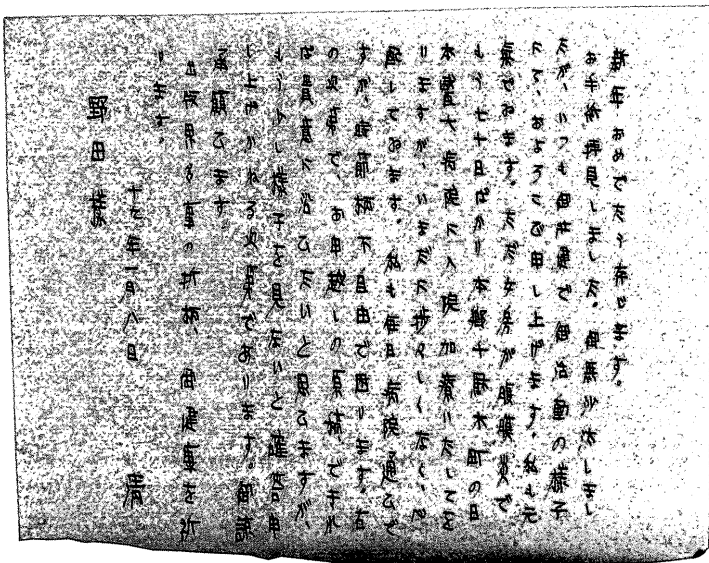 新年おめでたう存じます。
お手紙拝見しました。御無沙汰しまし
たが、いつも御壮健で御活動の様子
にて、およろこび申し上げます。私も元
気であます。ただ女房が腹膜炎で
もう七十日ばかり本郷千駄木町の日
本醫大病院に入院加療いたしてを
りますが、いまだに捗々しくなく、心
配してゐます。私も毎日病院通ひで
すが、時節柄不自由で困ります。右
の次第で、お申越しの原稿、できれ
ば貴意に沿ひたいと思ひますが、
もう少し様子を見ないと確答申
し上げかねる次第であります。御諒
承願ひます。
出版界多事の折柄、御健康を祈
ります。
十九年一月八日
清
野田様